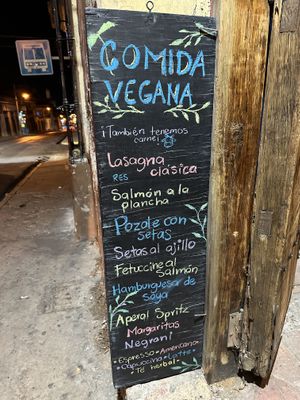 COMIDA
VEGANA
¡También tenemos
carne!
Lasagna
clásica
RES
Salmón a la
plancha
Pozole con
setas
Setas al ajillo
Fetuccine al
Salmón
Hamburguesar de
soya
Aperol Spritz
Margaritas
Negrani
•Espresso •Americano•
•Capuccino •Latte•
Té herbal•